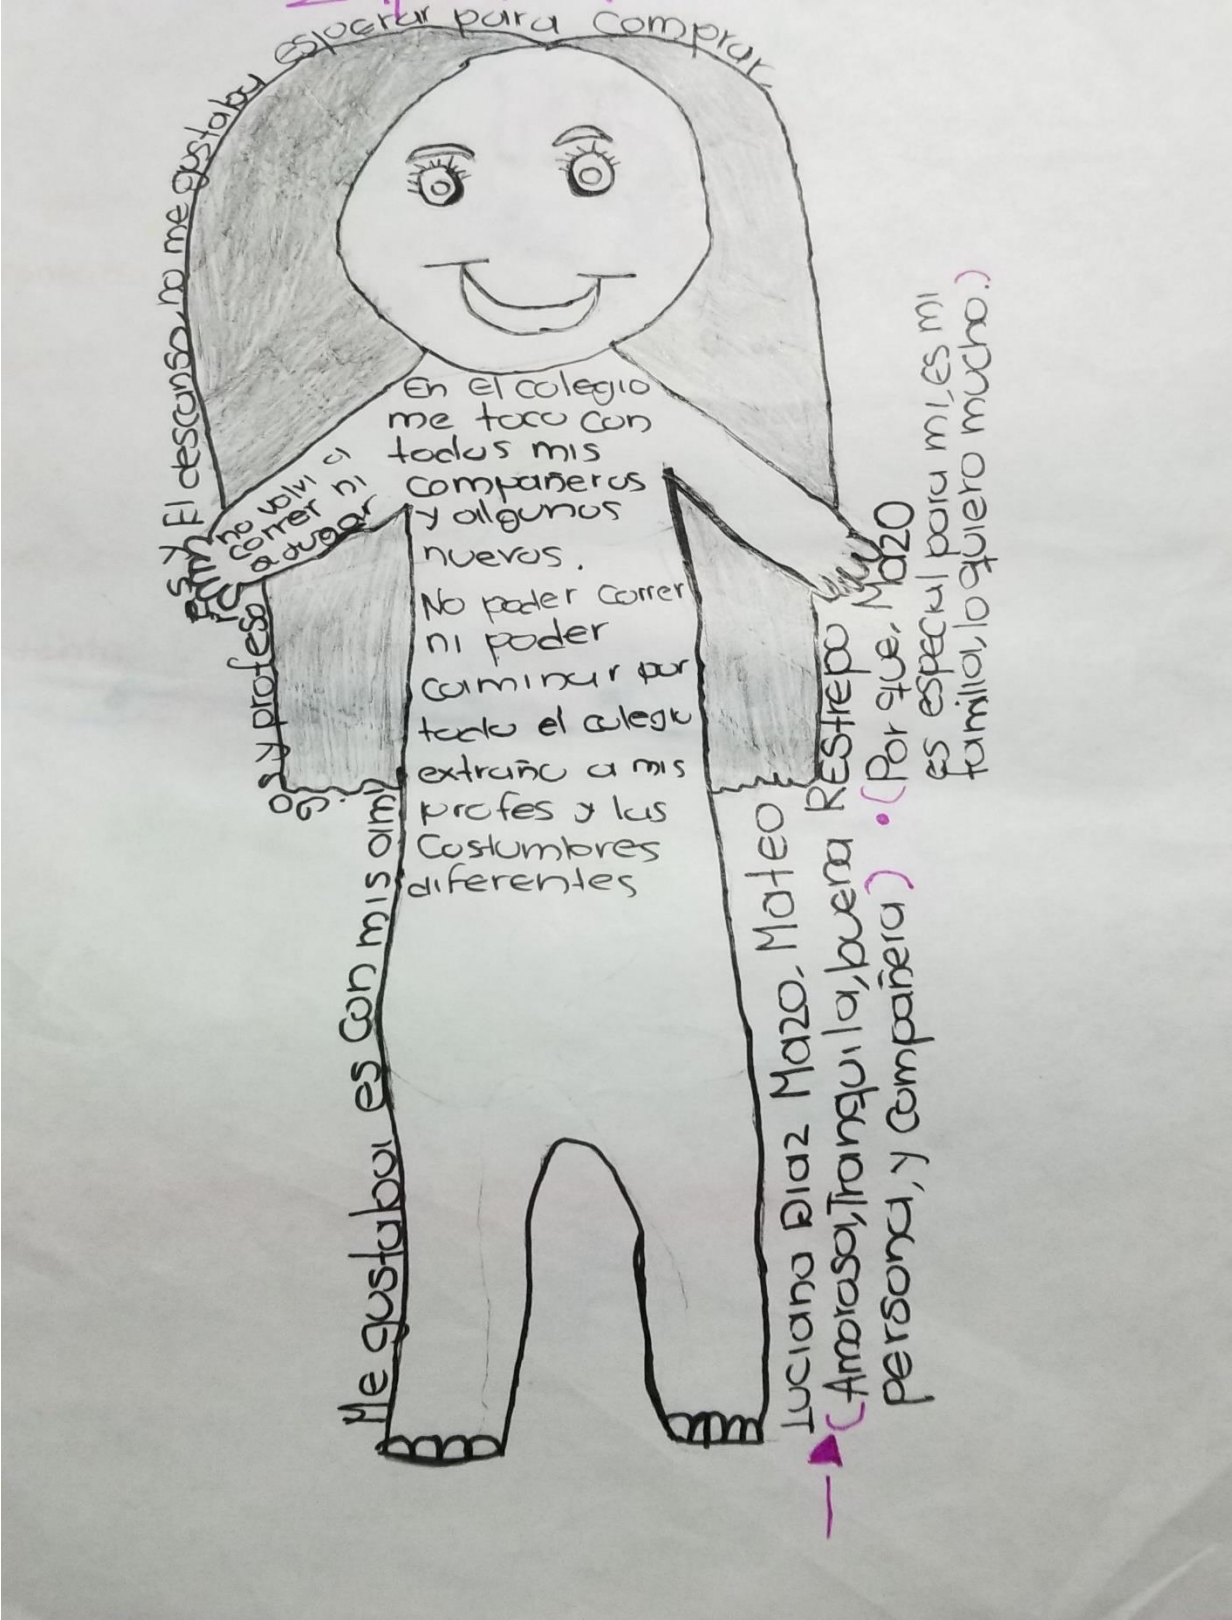 Me gustaba es con mis ami
gos y profeso
res y
El descanso, no me gustaba esperar para comprar
no volvi a
correr ni
a jugar
En El colegio
me toco con
todos mis
compañeros
y algunos
nuevos.
No poder correr
ni poder
caminar por
todo el colegio
extraño a mis
profes y las
Costumbres
diferentes
Luciana Diaz Mazo. Mateo REStrepo Mazo
(Amorosa, Tranquila, buena
persona, y compañera)
(Por que,
es especial para mi, es mi
familia, lo quiero mucho.)